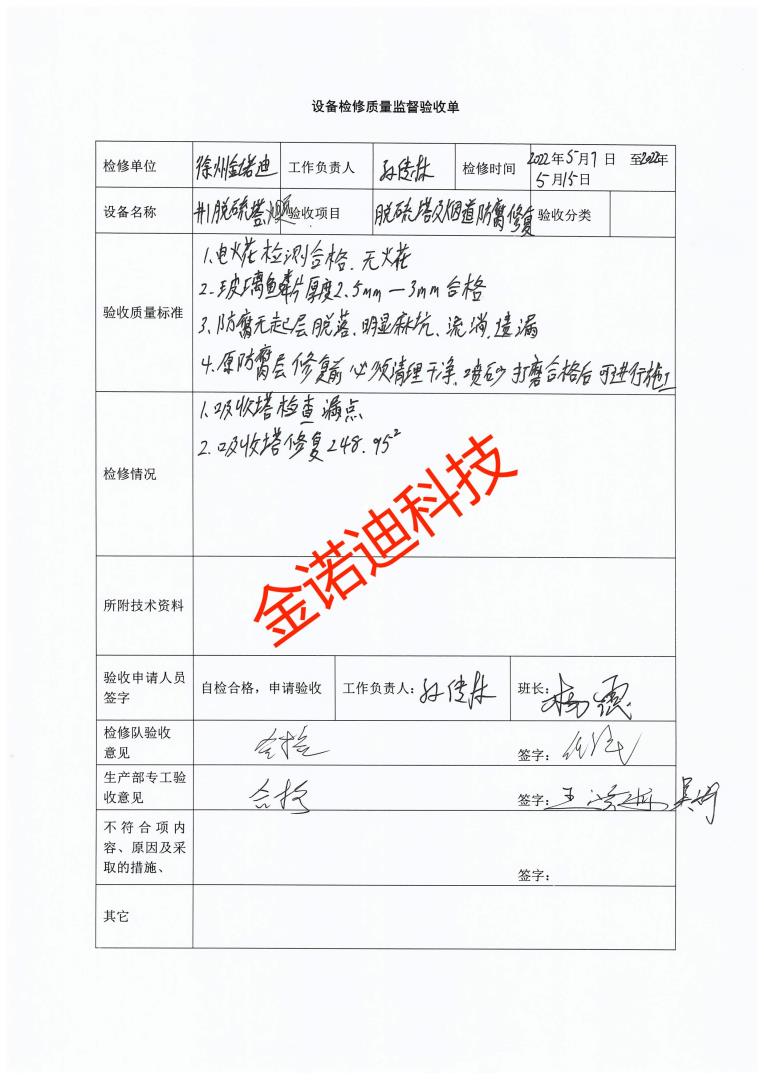 设备检修质量监督验收单
检修单位 徐州金诺迪 工作负责人 孙传林 检修时间 2022年5月7日 至2022年
5月15日
设备名称 #1脱硫塔 验收项目 脱硫塔及烟道防腐修复 验收分类
验收质量标准
1.电火花检测合格.无火花
2.玻璃鳞片厚度2.5mm—3mm合格
3、防腐无起层脱落、明显麻坑、流淌、遗漏
4.原防腐层修复前必须清理干净、喷砂打磨合格后可进行施工
检修情况
1.吸收塔检查漏点
2.吸收塔修复248.95²
金诺迪科技
所附技术资料
验收申请人员
签字
自检合格，申请验收 工作负责人：孙传林 班长：
检修队验收
意见
合格 签字：
生产部专工验
收意见
合格 签字：
不符合项内
容、原因及采
取的措施、
签字：
其它